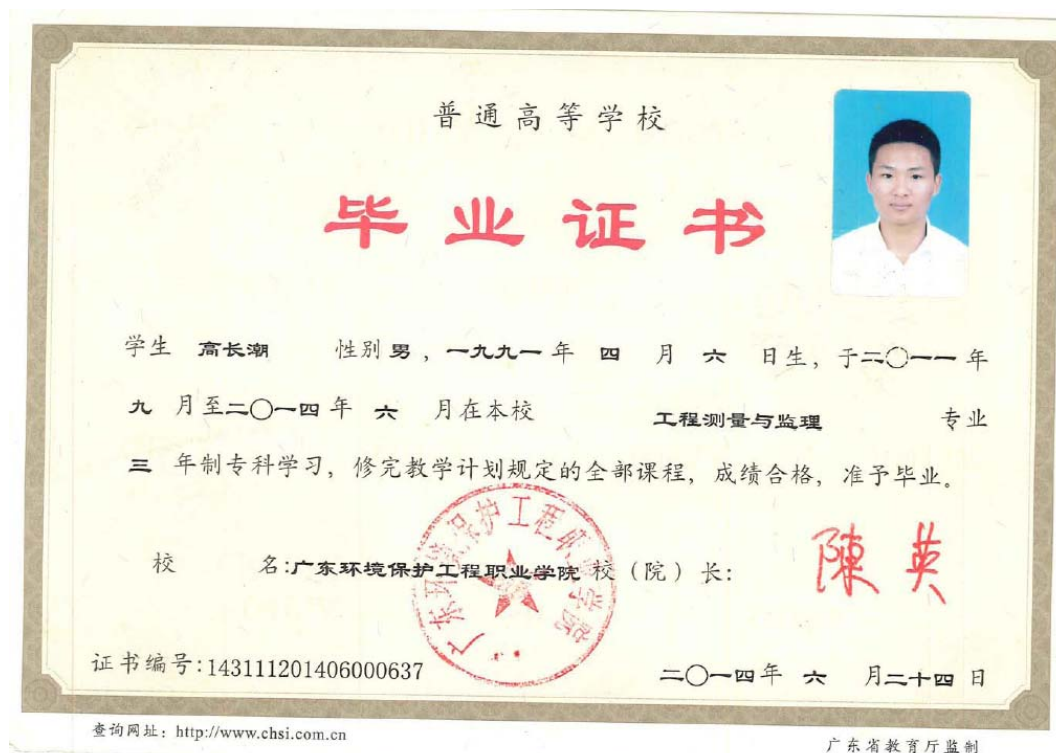 普通高等学校
毕业证书
学生 高长潮 性别 男 , 一九九一 年 四 月 六 日生, 于二〇一一 年
九 月至二〇一四 年 六 月在本校 工程测量与监理 专业
三 年制专科学习, 修完教学计划规定的全部课程, 成绩合格, 准予毕业。
广东环境保护工程职业学院
校 名:广东环境保护工程职业学院 校(院)长: 陳英
证书编号:143111201406000637 二〇一四 年 六 月二十四 日
查询网址: http://www.chsi.com.cn 广东省教育厅监制